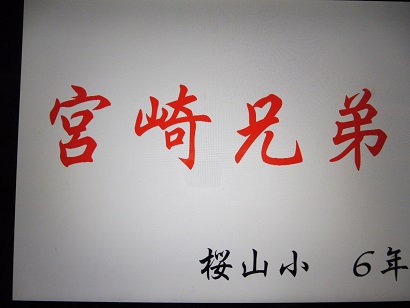 宮崎兄弟
桜山小 6年